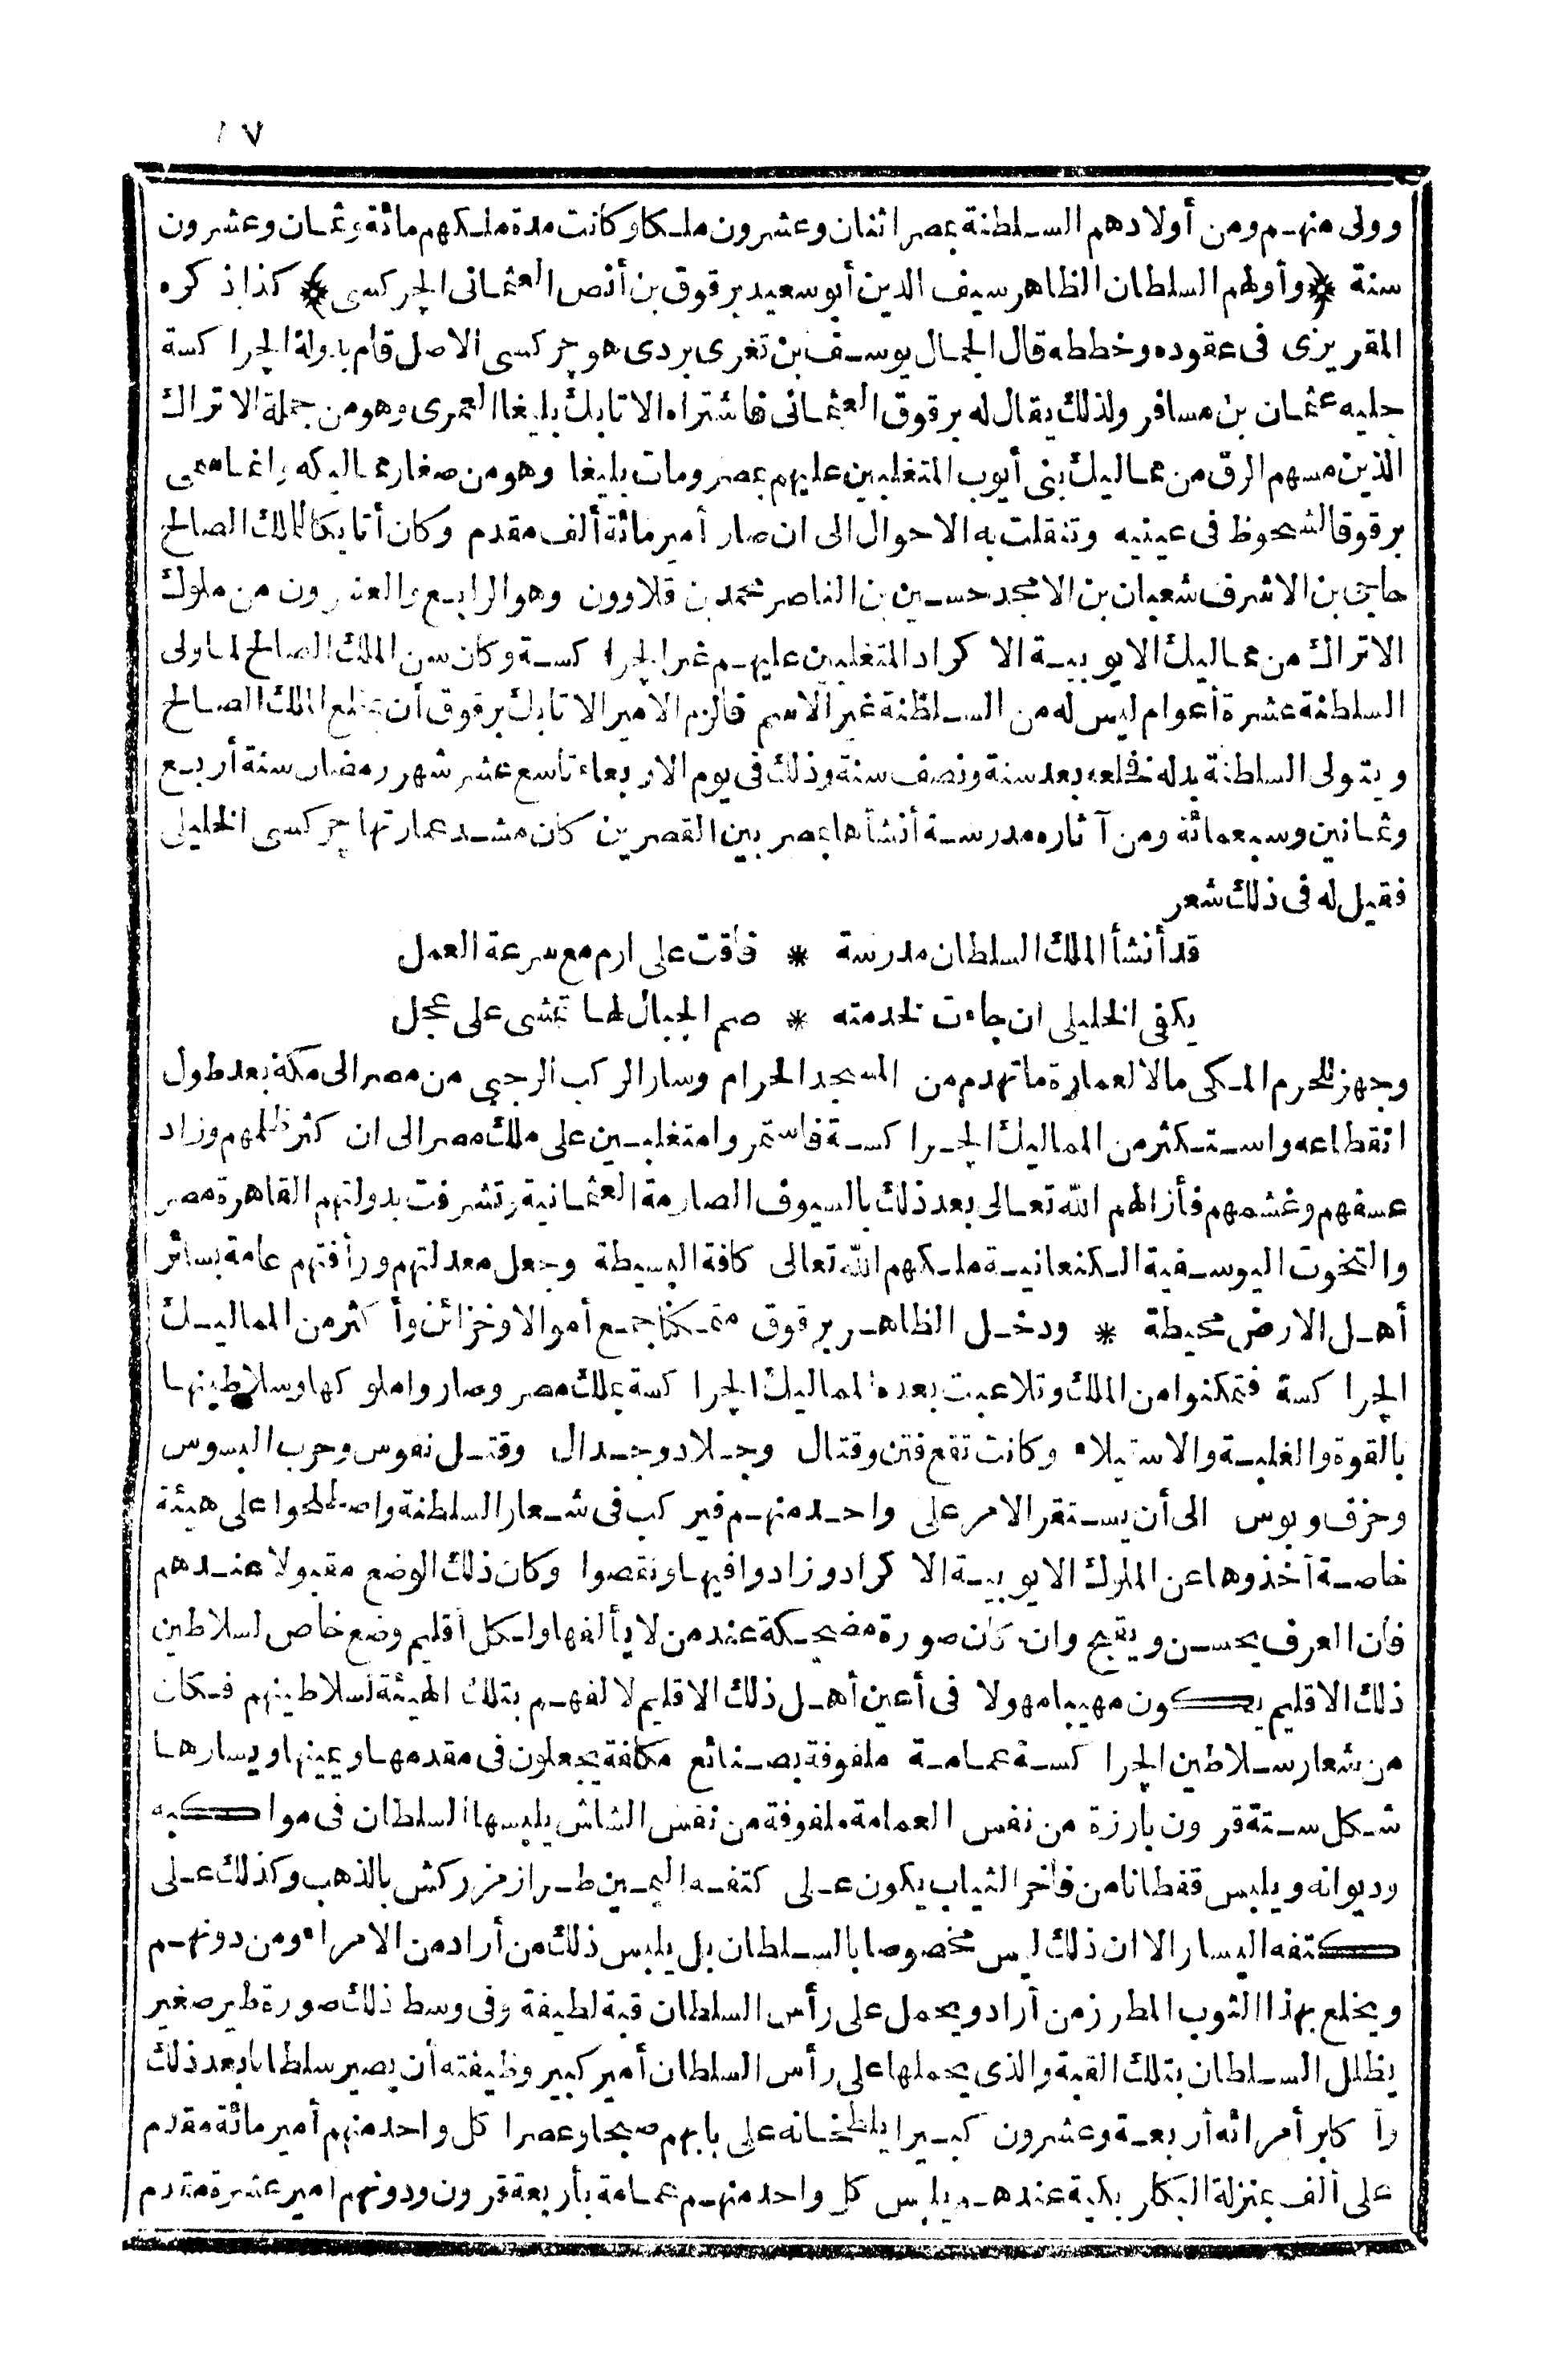 ١٧
وولى منهم ومن أولادهم السلطنة بمصر اثنان وعشرون ملكا وكانت مدة ملكهم مائة وثمان وعشرون
سنة ﴿وأولهم السلطان الظاهر سيف الدين أبو سعيد برقوق بن أنص العثمانى الجركسى﴾ كذا ذكره
المقريزى فى عقوده وخططه قال الجمال يوسف بن تغرى بردى هو جركسى الاصل قام بدولة الجراكسة
جلبه عثمان بن مسافر ولذلك يقال له برقوق العثمانى فاشتراه الاتابك يلبغا العمرى وهو من جملة الاتراك
الذين مسهم الرق من مماليك بنى أيوب المتغلبين عليهم بمصر ومات يلبغا وهو من صغار مماليكه وانما سمى
برقوقا لشحوظ فى عينيه وتنقلت به الاحوال الى ان صار أمير مائة ألف مقدم وكان أتابكا للملك الصالح
حاجى بن الاشرف شعبان بن الامجد حسين بن الناصر محمد بن قلاوون وهو الرابع والعشرون من ملوك
الاتراك من مماليك الايوبية الاكراد المتغلبين عليهم غير الجراكسة وكان سن الملك الصالح لما ولى
السلطنة عشرة أعوام ليس له من السلطنة غير الاسم فالزم الامير الاتابك برقوق أن يخلع الملك الصالح
ويتولى السلطنة بدله فخلعه بعد سنة ونصف سنة وذلك فى يوم الاربعاء تاسع عشر شهر رمضان سنة أربع
وثمانين وسبعمائة ومن آثاره مدرسة أنشأها بمصر بين القصرين كان مشد عمارتها جركسى الخليلى
فقيل له فى ذلك شعر
قد أنشأ الملك السلطان مدرسة * فاقت على ارم مع سرعة العمل
يكفى الخليلى ان جاءت لخدمته * صم الجبال لها تمشى على عجل
وجهز للحرم المكى مالا لعمارة ما تهدم من المسجد الحرام وسار الركب الرجبى من مصر الى مكة بعد طول
انقطاعه واستكثر من المماليك الجراكسة فاستمروا متغلبين على ملك مصر الى ان كثر ظلمهم وزاد
عسفهم وغشمهم فأزالهم الله تعالى بعد ذلك بالسيوف الصارمة العثمانية وتشرفت بدولتهم القاهرة مصر
والتخوت اليوسفية الكنعانية ملكهم الله تعالى كافة البسيطة وجعل معدلتهم ورأفتهم عامة بسائر
أهل الارض محيطة * ودخل الظاهر برقوق متمكنا جمع أموالا وخزائن وأكثر من المماليك
الجراكسة فتمكنوا من الملك وتلاعبت بعده المماليك الجراكسة بملك مصر وصاروا ملوكها وسلاطينها
بالقوة والغلبة والاستيلاء وكانت تقع فتن وقتال وجلاد وجدال وقتل نفوس وحرب البسوس
وخزق وبوس الى أن يستقر الامر على واحد منهم فيركب فى شعار السلطنة واصطلحوا على هيئة
خاصة أخذوها عن الملوك الايوبية الاكراد وزادوا فيها ونقصوا وكان ذلك الوضع مقبولا عندهم
فان العرف يحسن ويقبح وان كان صورة مضحكة عند من لا يألفها ولكل أقليم وضع خاص لسلاطين
ذلك الاقليم يكون مهيبا مهولا فى أعين أهل ذلك الاقليم لالفهم بتلك الهيئة لسلاطينهم فكان
من شعار سلاطين الجراكسة عمامة ملفوفة بصنائع مكافة يجعلون فى مقدمها ويمينها ويسارها
شكل ستة قرون بارزة من نفس العمامة ملفوفة من نفس الشاش يلبسها السلطان فى مواكبه
وديوانه ويلبس قفطانا من فاخر الثياب يكون على كتفه اليمين طراز مزركش بالذهب وكذلك على
كتفه اليسار الا ان ذلك ليس مخصوصا بالسلطان بل يلبس ذلك من أراد من الامراء ومن دونهم
ويخلع بهذا الثوب المطرز من أراد ويحمل على رأس السلطان قبة لطيفة وفى وسط ذلك صورة طير صغير
يظلل السلطان بتلك القبة والذى يحملها على رأس السلطان أمير كبير وظيفته أن يصير سلطانا بعد ذلك
وأكابر أمرائه أربعة وعشرون كبيرا يلطخانه على بابهم صبحا وعصرا كل واحد منهم أمير مائة مقدم
على ألف بمنزلة البكلر بكية عندهم يلبس كل واحد منهم عمامة بأربعة قرون ودونهم امير عشرة مقدم